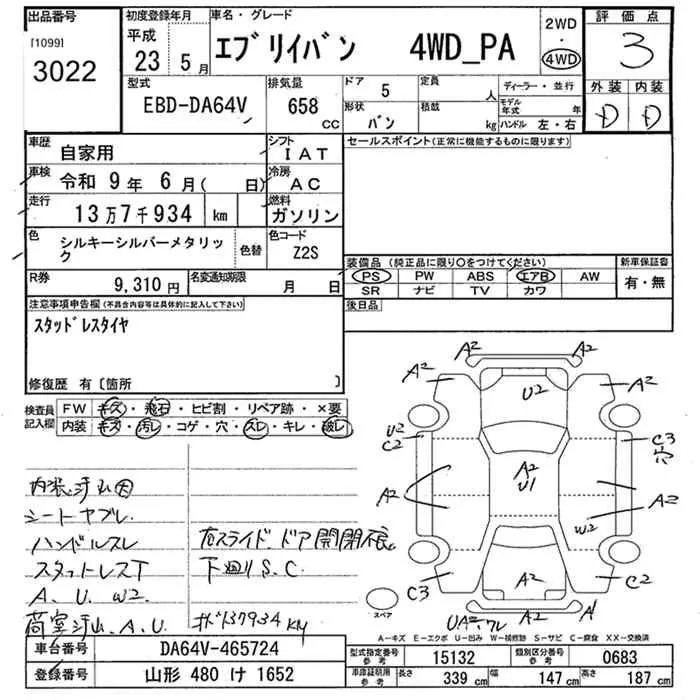 出品番号
[1099]
3022
初度登録年月
平成
23年 5月
車名・グレード
エブリイバン 4WD_PA
2WD
・
4WD
評価点
3
外装 内装
D D
型式
EBD-DA64V
排気量
658
CC
ドア
5
定員
人
形状
バン
積載
kg
ディーラー・並行
モデル年式 年
ハンドル 左・右
車歴
自家用
シフト
IAT
車検
令和 9年 6月( 日)
冷房
AC
走行
13万7千934 km
燃料
ガソリン
色
シルキーシルバーメタリック
色替
色コード
Z2S
R券
9,310円
名変通知期限
月 日
セールスポイント(正常に機能するものに限ります)
装備品(純正品に限り○をつけてください)
PS PW ABS エアB AW
SR ナビ TV カワ
新車保証書
有・無
後日品
注意事項申告欄(不具合内容等は具体的に記入して下さい)
スタッドレスタイヤ
修復歴 有〔箇所 〕
検査員記入欄
FW キズ・飛石・ヒビ割・リペア跡・×要
内装 キズ・汚レ・コゲ・穴・スレ・キレ・破レ
シートヤブレ
ハンドルスレ
スタットレスT
A.U.W2.
荷室汚.A.U.
右スライドドア開閉不良
下廻りS.C.
137934 KM
A2 A2
A2 U2 A2
A2
U2
C2
C3
穴
A2
U1
A2
A2
W2
A2
C3 A2 C2
A2
A1
スペア
A-キズ E-エクボ U-凹み W-補修跡 S-サビ C-腐食 XX-交換済
車台番号
DA64V-465724
登録番号
山形 480 け 1652
型式指定番号
参考
15132
類別区分番号
参考
0683
車庫証明用
参考
長さ 339 cm 幅 147 cm 高さ 187 cm